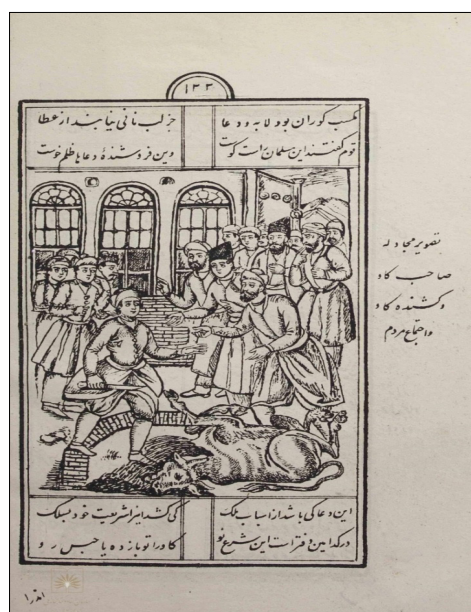 ۱۳۳
کسب کوران بود لابه و دعا جز لب نانی نیابند از عطا
قوم گفتند این مسلمان راست گوست وین فروشندهٔ دعاها ظلم خوست
تصویر مجادله
صاحب گاو
و کشنده گاو
و اجتماع مردم
این دعا کی باشد از اسباب ملک کی کشد این را شریعت خود بسلک
در کدامین دفترست این شرع نو گاو را تو باز ده یا حبس رو